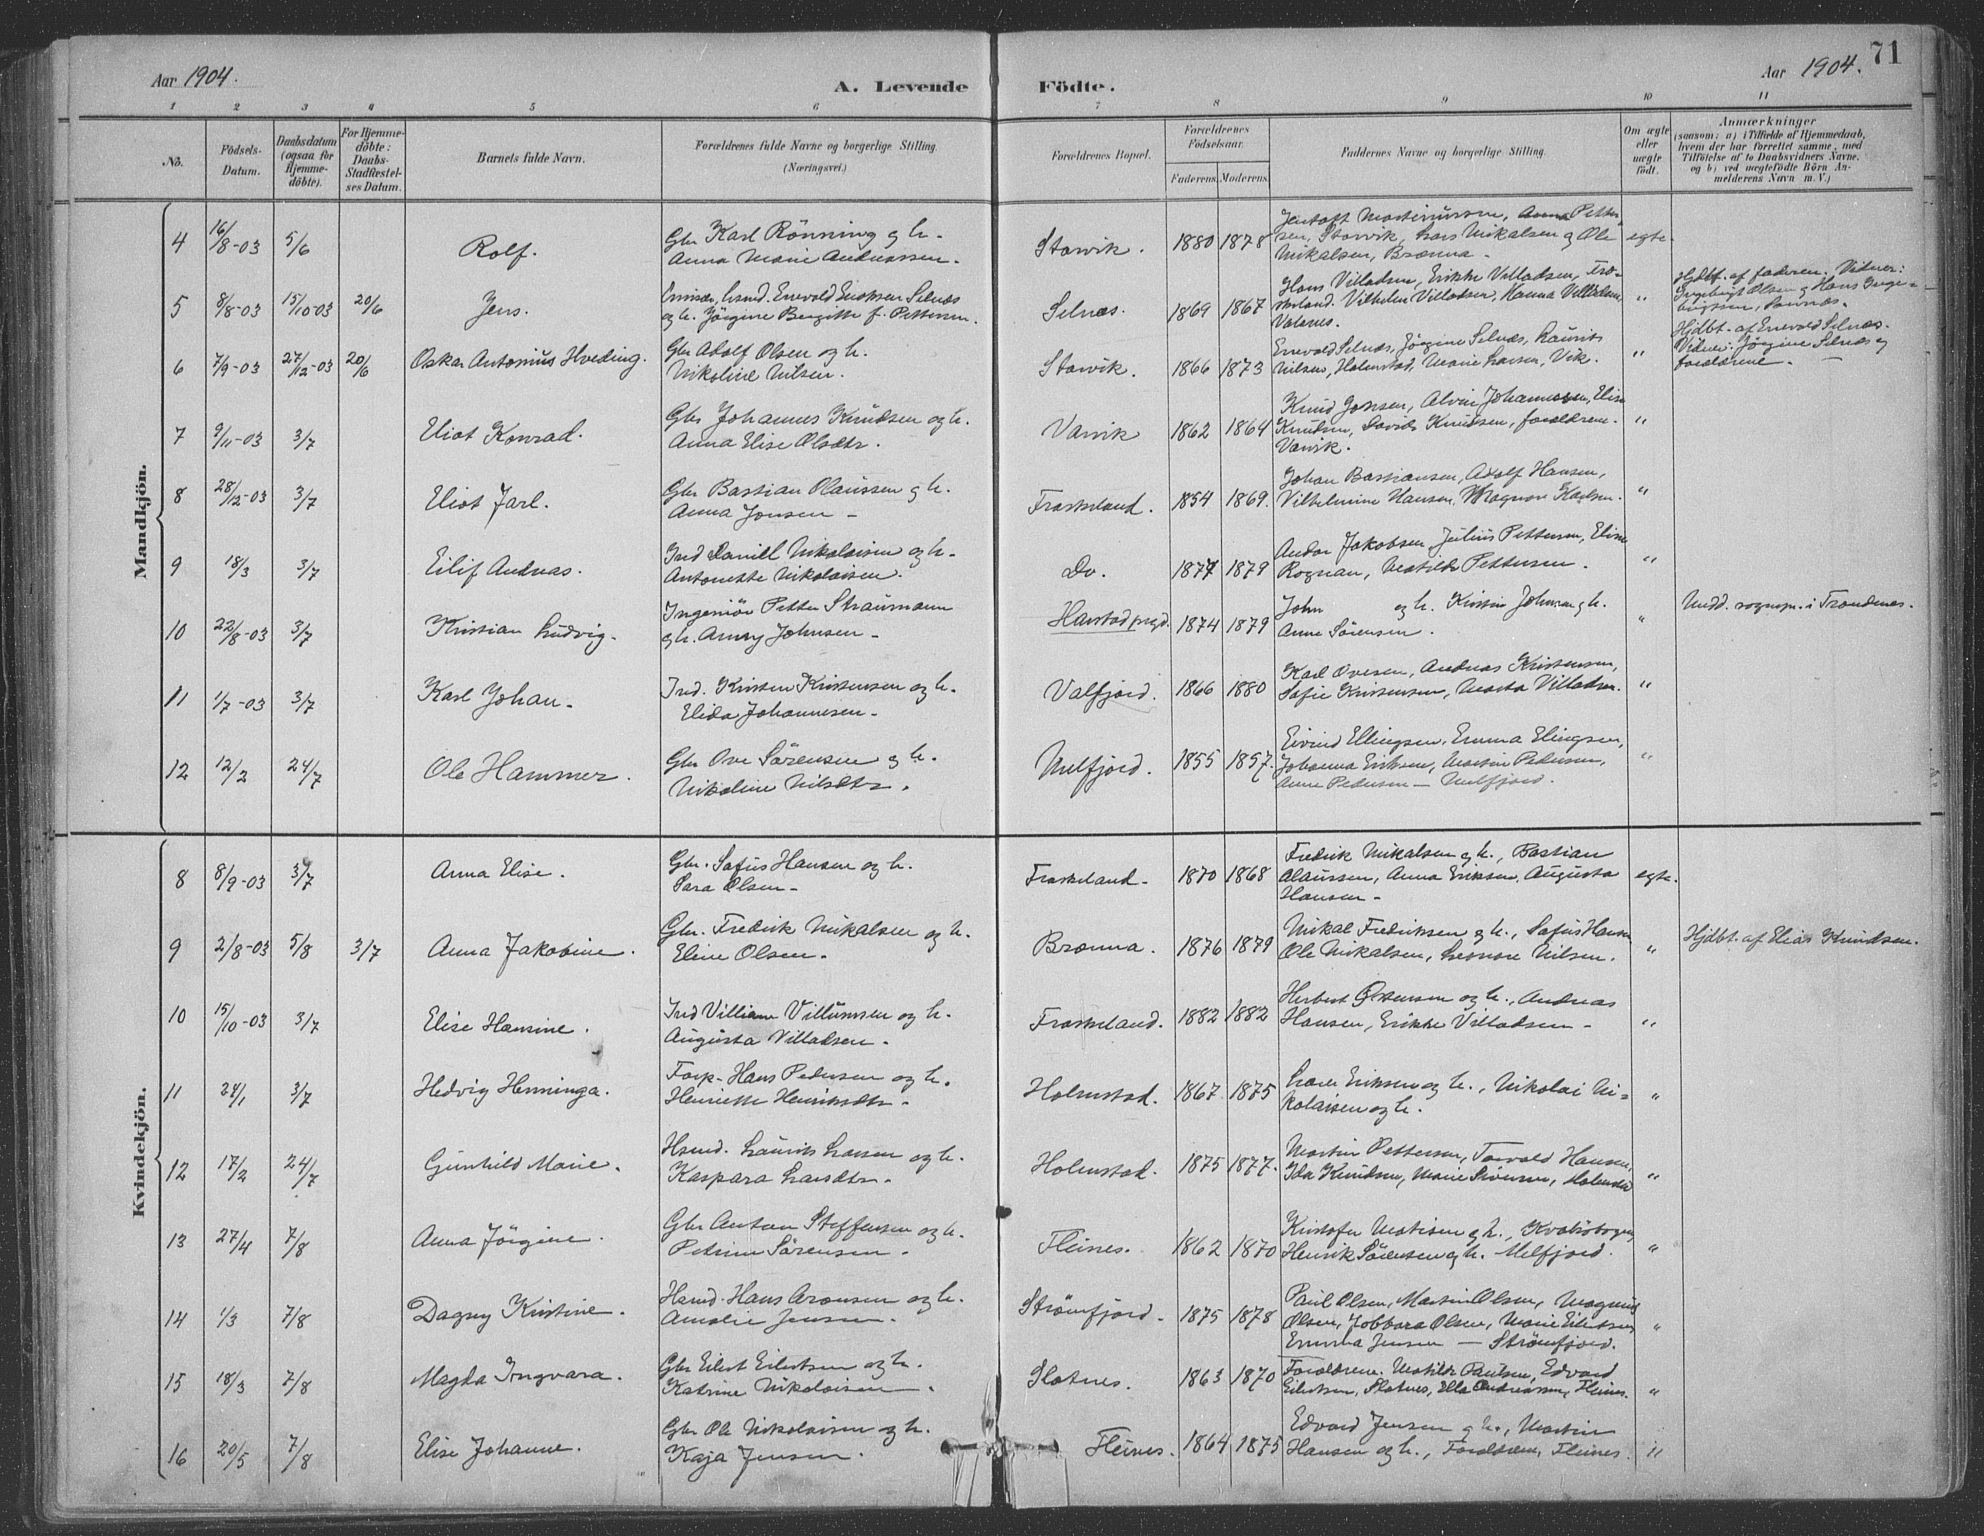 Aar 1904.
A. Levende Födte.
Aar 1904. 71
1 2 3 4 5 6 7 8 9 10 11
No.
Födsels-Datum.
Daabsdatum (ogsaa for Hjemme-döbte).
For Hjemme-döbte: Daabs-Stadfæstel-ses Datum.
Barnets fulde Navn.
Forældrenes fulde Navne og borgerlige Stilling. (Næringsvei.)
Forældrenes Bopæl.
Forældrenes Födselsaar. Faderens. Moderens.
Faddernes Navne og borgerlige Stilling.
Om ægte eller uægte födt.
Anmærkninger (saasom: a) i Tilfælde af Hjemmedaab, hvem der har forrettet samme, med Tilföielse af to Daabsvidners Navne, og b) ved uægtefödte Börn An-melderens Navn m. V.)
Mandkjön.
4 16/8-03 5/6 Rolf. Gbr Karl Rönning og h. Anna Marie Andreassen. Storvik. 1880 1878 Martinussen, Anna Petter-sen, Storvik, Lars Mikalsen og Ole Mikalsen, Brænna. egte.
5 8/8-03 15/10-03 20/6 Jens. Enevold Eriksen Selnæs og h. Jörgine Bergitte f. Pettersen. Selnæs. 1869 1867 Hans Villadsen, Erikke Villadsen, Fra-skeland. Vilhelm Villadsen, Hanna Villadsen, " Hjdbt. af faderen. Vidner: Ingebrigt Olsen og Hans Inge-brigtsen,
6 7/9-03 27/12-03 20/6 Oskar Antonius Hveding. Gbr Adolf Olsen og h. Nikoline Nilsen. Storvik. 1866 1873 Enevold Selnæs, Jörgine Selnæs, Laurits Nilsen, Holmstad, Marie Larsen, Vik. " Hjdbt. af Enevold Selnæs. Vidner: Jörgine Selnæs og forældrene.
7 9/11-03 3/7 Eliot Konrad. Gbr Johannes Knudsen og h. Anna Elise Olsdtr. Varvik 1862 1864 Knud Jonsen, Alvine Johannesen, Elise Knudsen, David Knudsen, forældrene. Varvik. "
8 28/12-03 3/7 Eliot Jarl. Gbr Bastian Olaussen og h. Anna Jonsen Fraskeland. 1854 1869. Johan Bastiansen, Adolf Hansen, Vilhelmine Hansen, Magnor Karlsen. "
9 18/3 3/7 Eilif Andreas. Ind Daniel Nikolaisen og h. Antonette Nikolaisen. Do. 1877 1879 Andor Jakobsen, Julius Pettersen, Eline Rognan, Matilde Pettersen. "
10 22/8-03 3/7 Kristian Ludvig. Ingeniör Petter Straumann og h. Anny Johnsen Harstad prgd. 1874 1879 John og h. Kristin Johnsen og h. Anne Sörensen. " Medd. sognepr. i Trondenes.
11 1/7-03 3/7 Karl Johan. Ind. Kristen Kristensen og h. Elida Johannesen Valfjord. 1866 1880 Karl Ovesen, Andreas Kristensen, Sofie Kristensen, Marta Villadsen. "
12 12/2 24/7 Ole Hammer. Gbr Ove Sörensen og h. Nikoline Nilsdtr. Melfjord. 1855 1857. Eivind Ellingsen, Emma Elingsen, Johanna Eriksen, Martin Pedersen, Anne Pedersen — Melfjord. "
Kvindekjön.
8 8/9-03 3/7 Anna Elise. Gbr. Sofus Hansen og h. Sara Olsen Fraskeland 1870 1868 Fredrik Mikalsen og h., Bastian Olaussen, Anna Eriksen, Augusta Hansen egte.
9 2/8-03 5/8 3/7 Anna Jakobine. Gbr. Fredrik Mikalsen og h. Eline Olsen. Brænna. 1876 1879 Mikal Fredriksen og h., Sofus Hansen Ole Mikalsen, Leonore Nilsen. " Hjdbt. af Elias Knudsen.
10 15/10-03 3/7 Elise Hansine. Ind Villiam Villumsen og h. Augusta Villadsen. Fraskeland. 1882 1882 Herbert Östensen og h., Andreas Hansen, Erikke Villadsen "
11 24/1 3/7 Hedvig Henninga. Forp. Hans Pedersen og h. Henriette Henriksdtr. Holmstad. 1867 1875 Lars Eriksen og h., Nikolai Ni-kolaisen og h. "
12 17/2 24/7 Gunhild Marie. Hsmd. Laurits Larsen og h. Kaspara Larsdtr. Holmstad. 1875 1877. Martin Pettersen, Torvald Hansen, Ida Knudsen, Marie Holmstad "
13 27/4 7/8 Anna Jörgine. Gbr Anton Steffensen og h. Petrine Sörensen. Fleines. 1862 1870 Kristofer Matisen og h., Henrik Sörensen og h. Melfjord. "
14 1/3 7/8 Dagny Kristine. Hsmd. Hans Aronsen og h. Amalie Jensen. Strömfjord. 1875 1878 Paul Olsen, Martin Olsen, Magnus Olsen, Jobbara Olsen, Marie Eilertsen Emma Jensen — Strömfjord. "
15 18/3 7/8 Magda Ingvara. Gbr Eilert Eilertsen og h. Katrine Nikolaisen. Slotnes. 1863 1870 Forældrene. Matilde Paulsen, Edvard Eilertsen, Slotnes, Ella Andreassen, Fleines. "
16 20/5 7/8 Elise Johanne. Gbr Ole Nikolaisen og h. Kaja Jensen. Fleines. 1864 1875 Edvard Jensen og h., Martin Hansen og h., Forældrene, Fleines. "